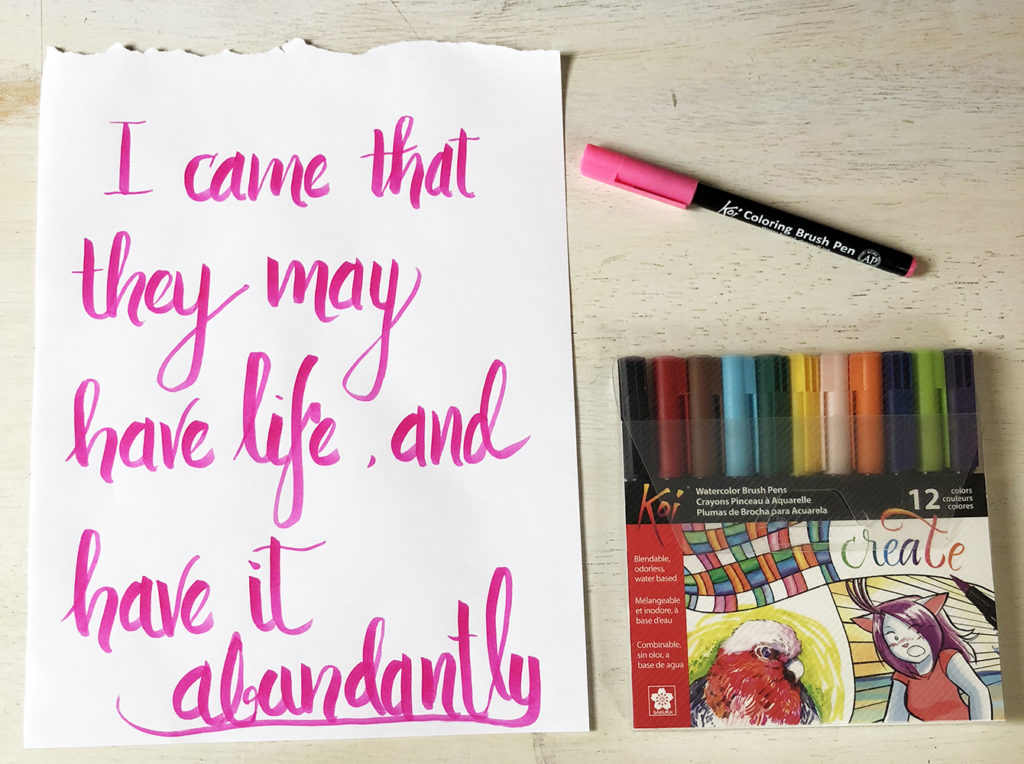 I came that
they may
have life, and
have it
abundantly
Koi Coloring Brush Pen
AP
Koi
Watercolor Brush Pens
Crayons Pinceau à Aquarelle
Plumas de Brocha para Acuarela
12 colors
couleurs
colores
create
Blendable,
odorless,
water based
Mélangeable
et inodore, à
base d'eau
Combinable,
sin olor, a
base de agua
SAKURA